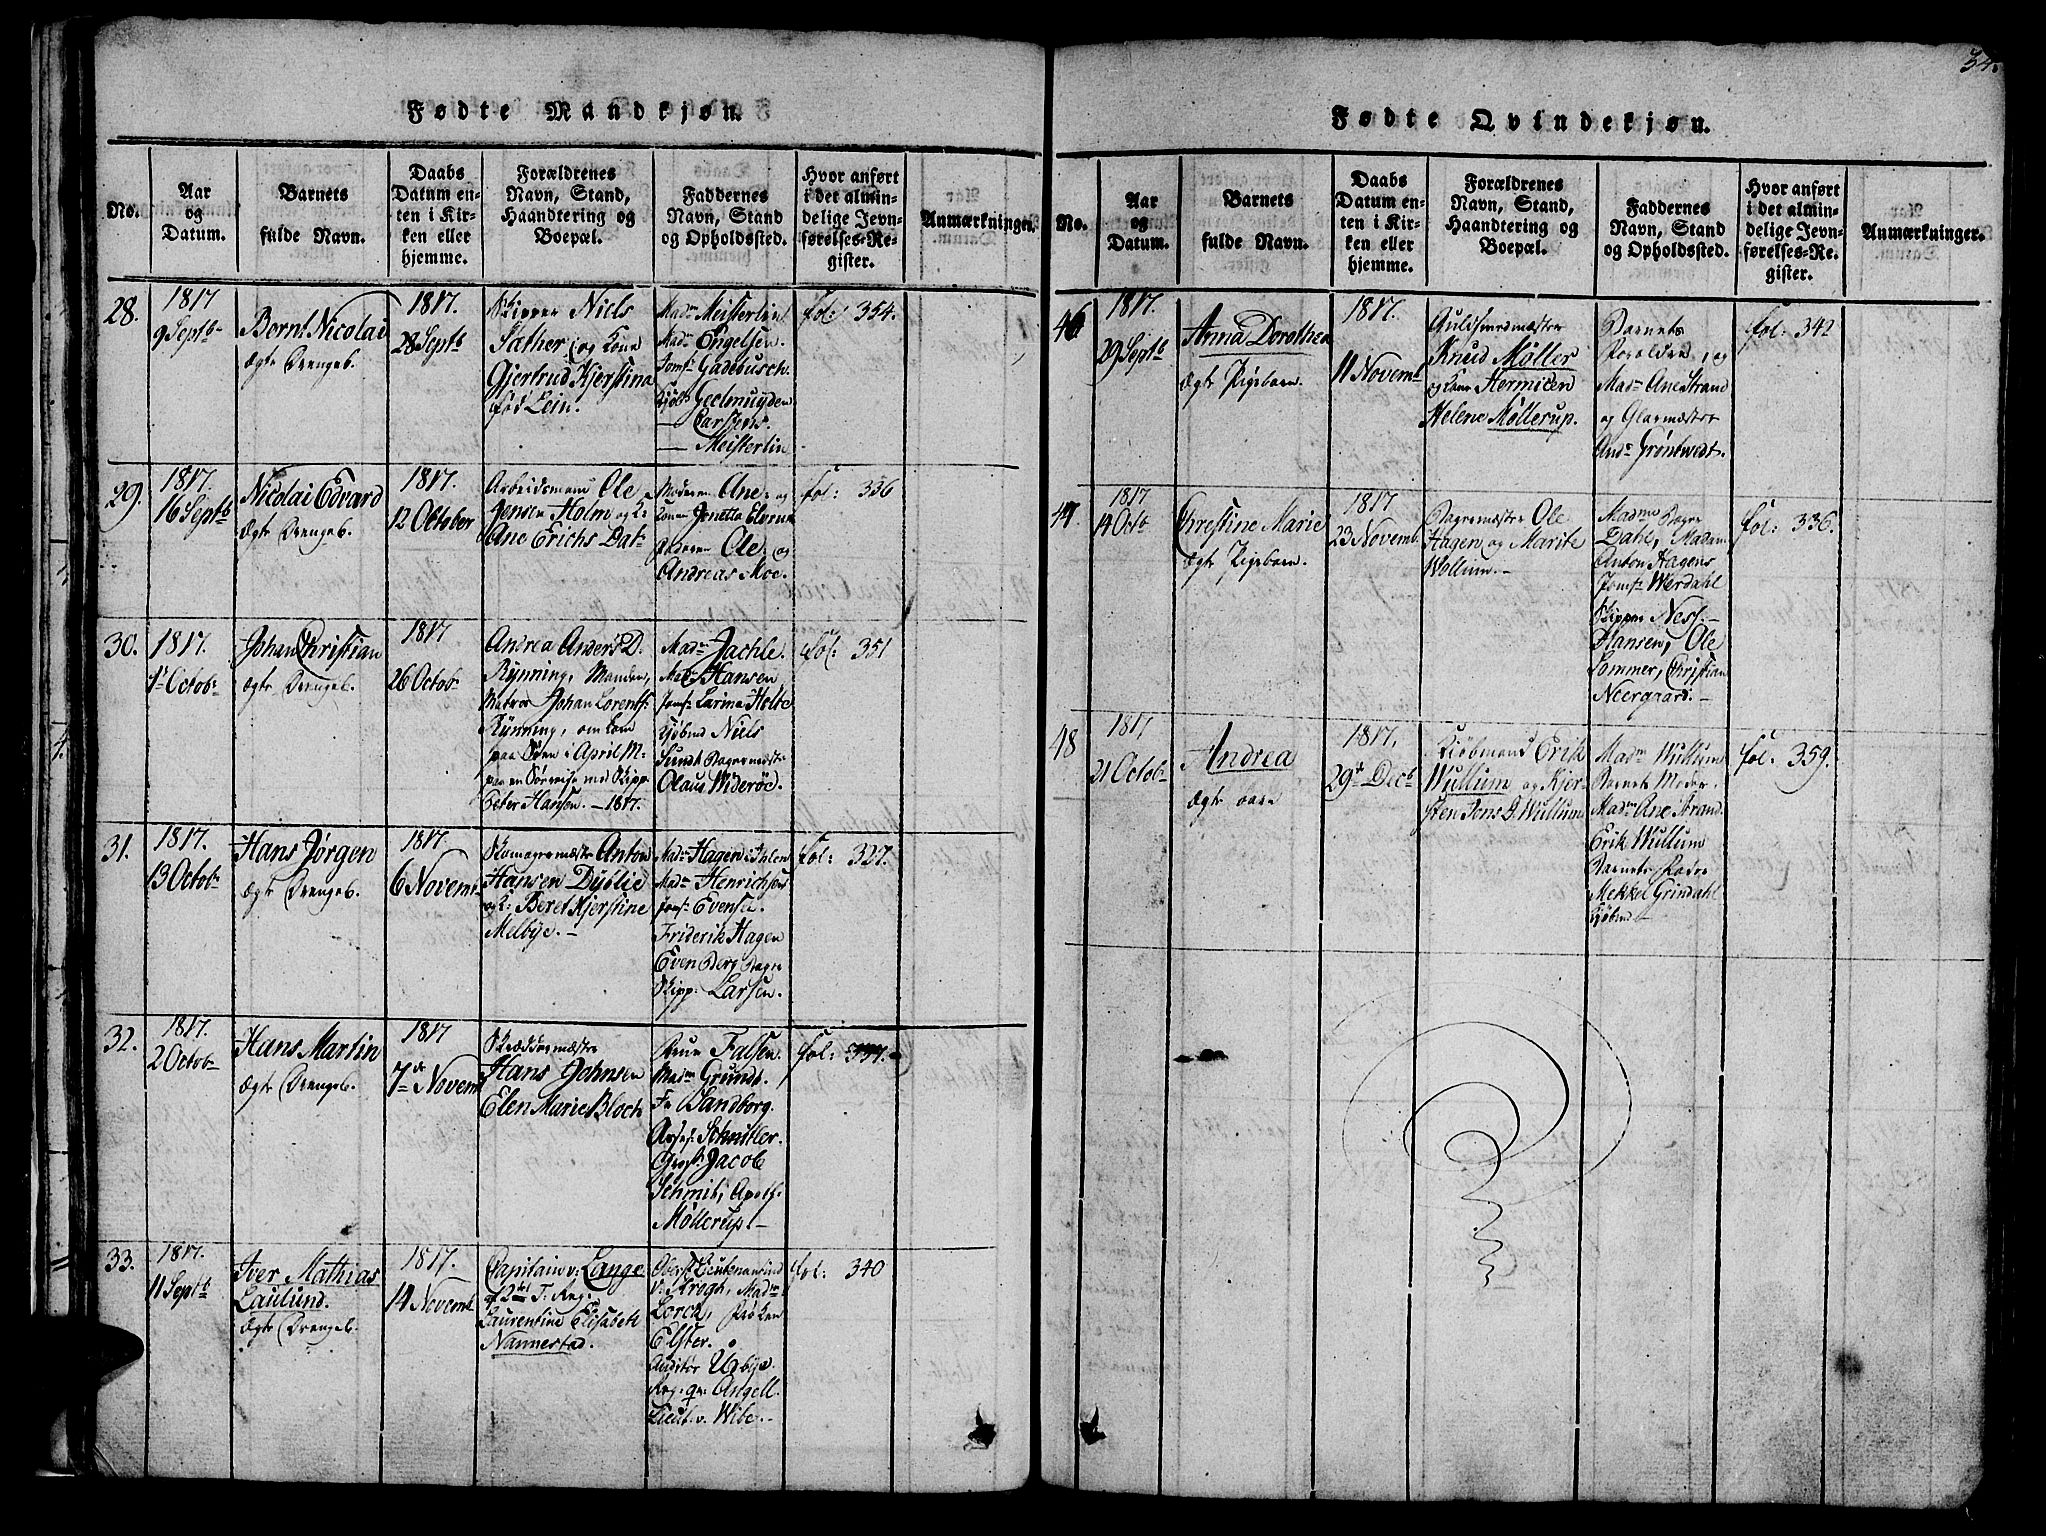 34.
Fødte Mandkjøn.
No.
Aar
og
Datum.
Barnets
fulde Navn.
Daabs
Datum en-
ten i Kir-
ken eller
hjemme.
Forældrenes
Navn, Stand,
Haandtering og
Boepæl.
Faddernes
Navn, Stand
og Opholdssted.
Hvor anført
i det almin-
delige Jevn-
førelses-Re-
gister.
Anmærkninger.
28.
1817
9 Septb
Bernt Nicolai
ægte Drengeb.
1817.
28 Septb
Skipper Niels
Sather og Kone
Gjertrud Kjerstina
fød Lein.
Madm Meisterlin
Madm Engelsen.
Jomf: Gadebusch.
Kjøbm Geelmuyden
— Carstens.
— Meisterlin
fol: 354.
29.
1817.
16 Septb
Nicolai Edvard
ægte Drengeb.
1817.
12 October
Arbeidsmand Ole
Jensen Holm og K:
Ane Erichs Dat
Moderen Ane og
Konen Jenetta
Faderen Ole og
Andreas Moe.
fol: 336
30.
1817.
1 Octob
Johan Christian
ægte Drengeb.
1817
26 Octob
Andrea Anders D.
Rynning, Manden,
Matros Johan Lorents
Rynning, omkom
paa Søen i April M:
paa en Søereise med Skipp
Peter Hansen. — 1817.
Madm Jachle.
Madm Hansen
Jomf: Larina Holte
Kjøbmd Niels
Sundt Bagermester
Olaus Widerøe.
fol: 351
31.
1817.
13 Octob
Hans Jørgen
ægte Drengeb.
1817.
6 Novemb
Skomagermæster Anton
Hansen Dyblie
og K: Beret Kjerstine
Melbye. —
Madm Hagen i Ihlen
Madm Henrichsen
Jomf: Evensen.
Friderik Hagen
Even Berg Bager
Skipp: Larsen.
fol: 327.
32.
1817.
2 Octob
Hans Martin
ægte Drengeb.
1817
7de Novemb
Skræddermæster
Hans Johnsen
Elen Marie Bloch
Frue Falsen.
Madm Grundt.
Fr Sandborg.
Asses: Schnitler.
Gross: Jacob
Schmit, Apoth:
Møllerup. —
fol:
33.
1817.
11 Septb
Iver Mathias
Laulund.
ægte Drengeb.
1817.
14 Novemb
Capitain v: Lange
af 2det T. Reg:
Laurentine Elisabeth
Nannestad.
Oberst Lieutenantinde
v: Krogh, Madm
Lorck, Frøken
Elster.
Auditør Urbye.
Reg: qv: Angell.
Lieut: v. Wibe. —
fol: 340
Fødte Qvindekjøn.
No.
Aar
og
Datum.
Barnets
fulde Navn.
Daabs
Datum en-
ten i Kir-
ken eller
hjemme.
Forældrenes
Navn, Stand,
Haandtering og
Boepæl.
Faddernes
Navn, Stand
og Opholdssted.
Hvor anført
i det almin-
delige Jevn-
førelses-Re-
gister.
Anmærkninger.
46
1817.
29 Septb
Anna Dorothea
ægte Pigebarn.
1817.
11 Novemb
Guldsmedmæster
Knud Møller
og Kone Hermicen
Helene Møllerup.
Barnets
Forældre, og
Madm Ane Strand
og Glarmæster
And: Grøntvedt.
fol: 342
47
1817
14 Octb
Chrestine Marie
ægte Pigebarn.
1817
23 Novemb.
Bagermæster Ole
Hagen og Marite
Wollum. —
Madme Bager
Dahl, Madam
Anton Hagens
Jomf: Werdahl
Skipper Ness. —
Hansen, Ole
Sommer, Christian
Neergaard. —
fol: 336.
48
1817
21 Octob
Andrea
ægte
1817.
29de Decb
Kjøbmand Erik
Wullum og Kjer-
sten Jons D. Wullum
Madm Wullum
Barnets Moder.
Madm Ane Strand.
Erik Wullum
Barnets Fader
Mekkel Grindahl
Kjøbmd —
fol: 359.